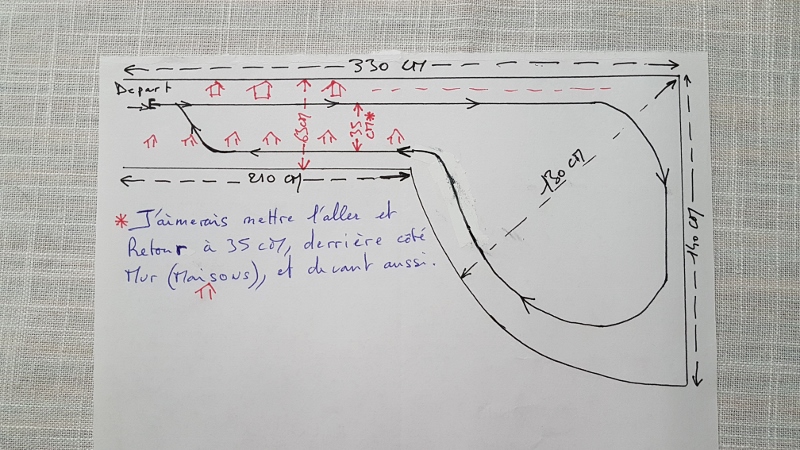 330 cm
Depart
E
63cm
35 cm*
210 cm
130 cm
140 cm
* J'aimerais mettre l'aller et
Retour à 35 cm, derrière côté
Mur (Maisons), et devant aussi.